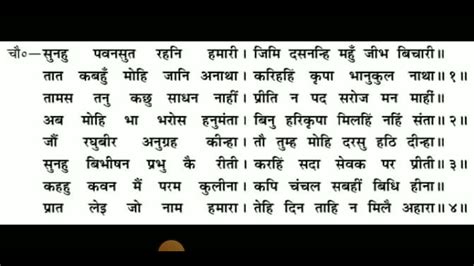 चौ०—सुनहु पवनसुत रहनि हमारी। जिमि दसनन्हि महुँ जीभ बिचारी॥
तात कबहुँ मोहि जानि अनाथा। करिहहिं कृपा भानुकुल नाथा॥१॥
तामस तनु कछु साधन नाहीं। प्रीति न पद सरोज मन माहीं॥
अब मोहि भा भरोस हनुमंता। बिनु हरिकृपा मिलहिं नहिं संता॥२॥
जौं रघुबीर अनुग्रह कीन्हा। तौ तुम्ह मोहि दरसु हठि दीन्हा॥
सुनहु बिभीषन प्रभु कै रीती। करहिं सदा सेवक पर प्रीती॥३॥
कहहु कवन मैं परम कुलीना। कपि चंचल सबहीं बिधि हीना॥
प्रात लेइ जो नाम हमारा। तेहि दिन ताहि न मिलै अहारा॥४॥